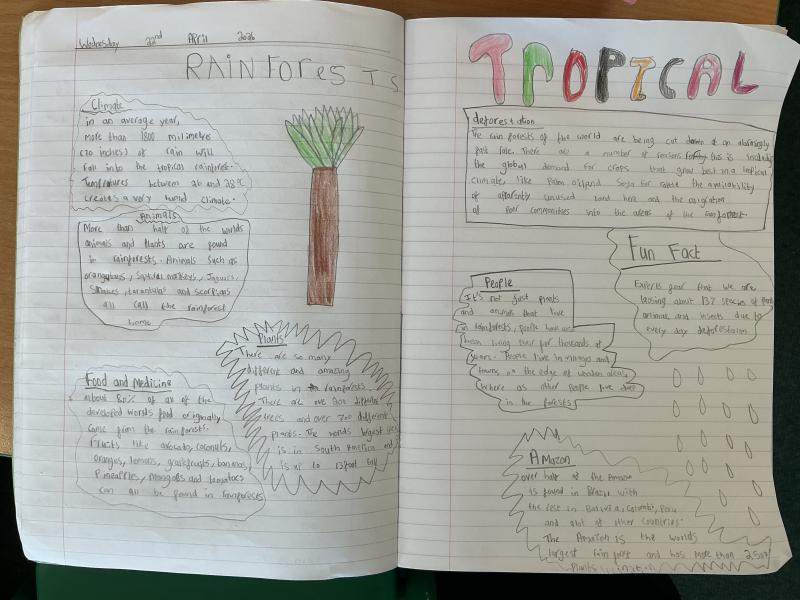 Wednesday 22nd April 2026
RAINforesTS
Climate
in an average year,
more than 1800 milimetre
(70 inches) of rain will
fall into the tropical rainforest.
Temperatures between 26 and 28°C
creates a very humid climate.
Animals
More than half of the worlds
animals and Plants are found
in rainforests. Animals such as
orangutans, Squirrel monkeys, Jaguars,
Snakes, tarantulas and scorpions
all call the rainforest
home
Food and Medicine
about 80% of all of the
developed worlds food originally
came from the rainforests.
fruits like avocado, coconuts,
oranges, lemons, grapefruits, bananas,
Pineapples, Mangoes and tomatoes
can all be found in rainforests
Plants
There are so many
different and amazing
plants in rainforests.
There are
trees and over 700 different
plants. The worlds largest
is in South America and
is up to
TrOPICAL
deforestation
The rain forests of the world are being cut down at an alarmingly
fast rate. There are a number of reasons for this is
the global demand for crops that grow best in a tropical
climate like Palm oil and Soya for
of apparently unused land here and the migration
of Poor communities into the areas of the
Fun Fact
Experts fear that we are
losing about 137 species of
animals and insects due to
every day deforestation
People
It's not just plants
and animals that live
in rainforests, people have
been living over for thousands of
years. People live in villages and
towns on the edge of wooden areas,
where as other People live deep
in the forests
AMazon
over half of the Amazon
is found in Brazil with
the rest in Bolivia, Colombia, Peru
and alot of other countries.
The Amazon IS the worlds
largest rain forest and has more than
Plants